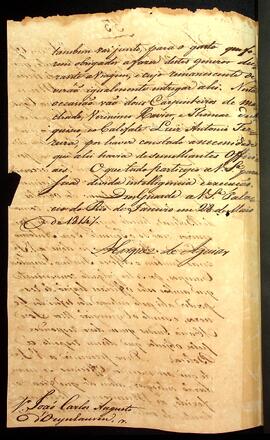 tambem vai junto, para o gasto que fo-
rem obrigados a fazer destes generos du-
rante a Viagem, e cujo remanescente de-
verão igualmente entregar ahi. Nesta
occasião vão dous Carpinteiros de ma-
chado, Xavier, e Thomaz
e o Calafate Luiz Antonio Fer-
reira, por haver constado a necessidade
que ahi havia de semelhantes Offici-
aes. O que tudo participo a V. S. para
sua devida intelligencia e execução.
Deos guarde a V. S. Pala-
cio do Rio de Janeiro em 28 de Maio
de 1817.
Marquez de Aguiar
Sr. João Carlos Augusto
d'Oeynhausen